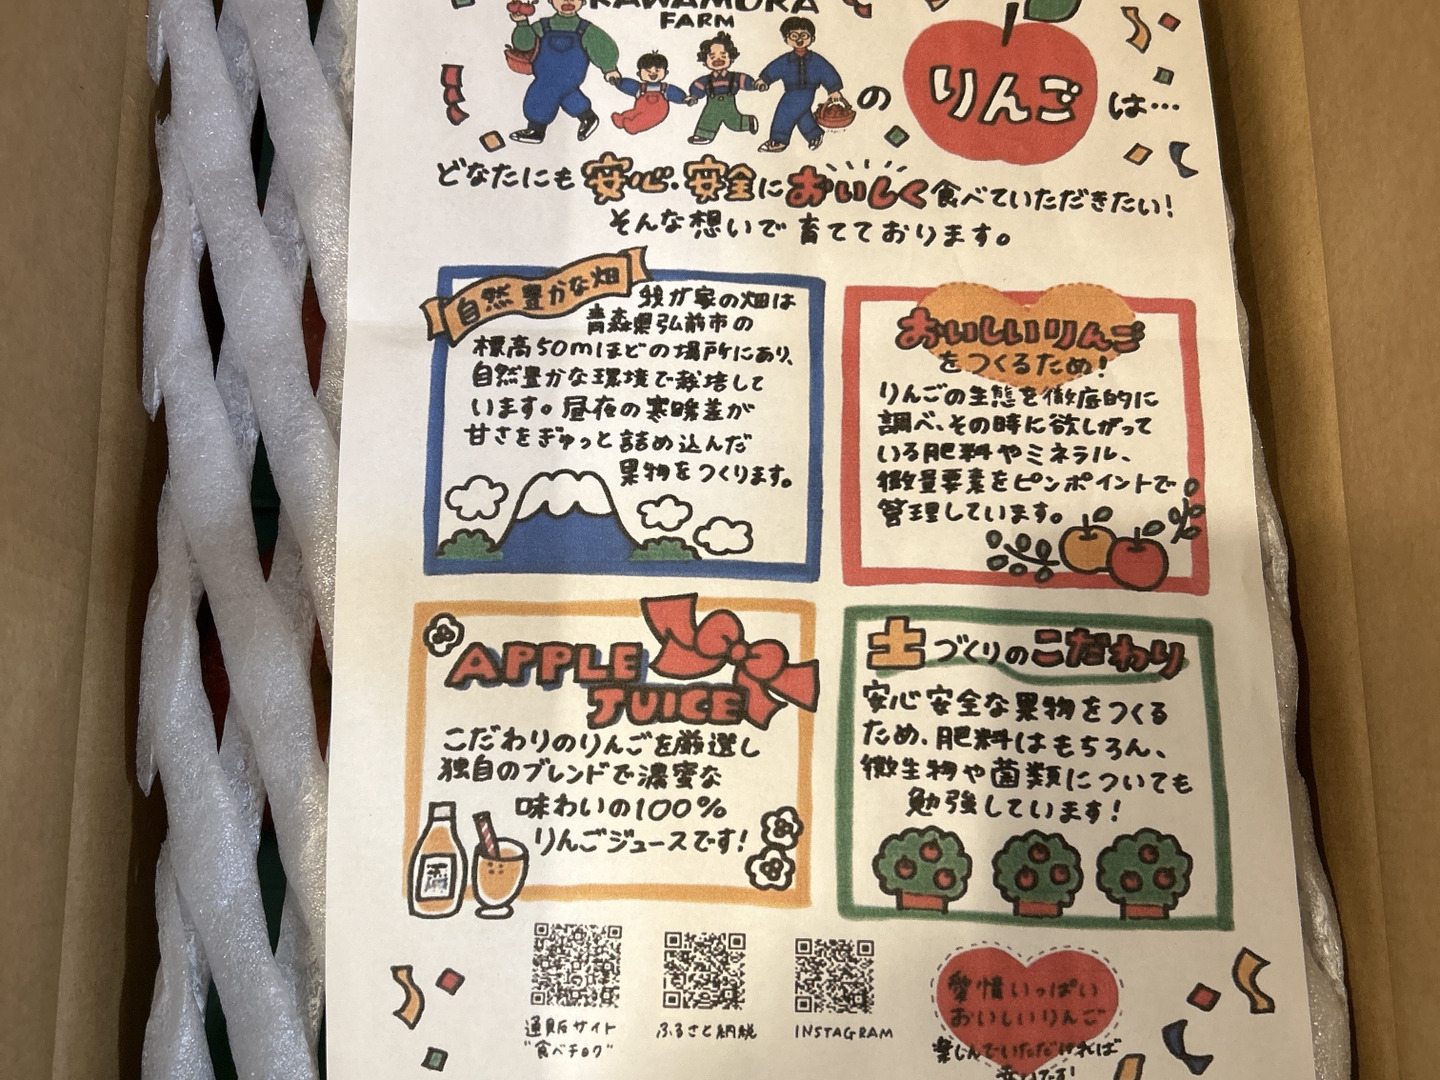 KAWAMURA
FARM
の
りんご
は…
どなたにも安心・安全においしく食べていただきたい!
そんな想いで育てております。
自然豊かな畑
我が家の畑は
青森県弘前市の
標高50mほどの場所にあり、
自然豊かな環境で栽培して
います。昼夜の寒暖差が
甘さをぎゅっと詰め込んだ
果物をつくります。
おいしいりんご
をつくるため!
りんごの生態を徹底的に
調べ、その時に欲しがって
いる肥料やミネラル、
微量要素をピンポイントで
管理しています。
APPLE
JUICE
こだわりのりんごを厳選し
独自のブレンドで濃蜜な
味わいの100%
りんごジュースです!
土づくりのこだわり
安心安全な果物をつくる
ため、肥料はもちろん、
微生物や菌類についても
勉強しています!
通販サイト
"食べチョク"
ふるさと納税
INSTAGRAM
愛情いっぱい
おいしいりんご
楽しんでいただければ